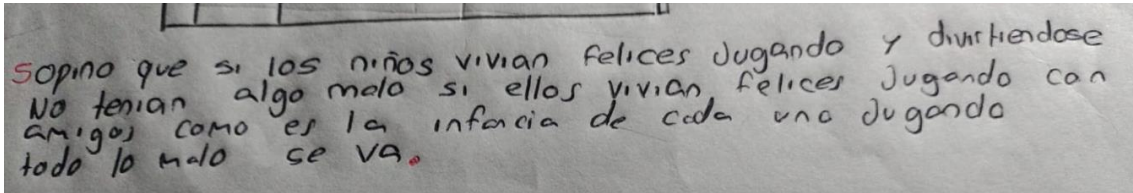 Sopino que si los niños vivian felices Jugando y divirtiendose
No tenian algo malo si ellos vivian felices Jugando con
amigos como es la infancia de cada uno Jugando
todo lo malo se va.